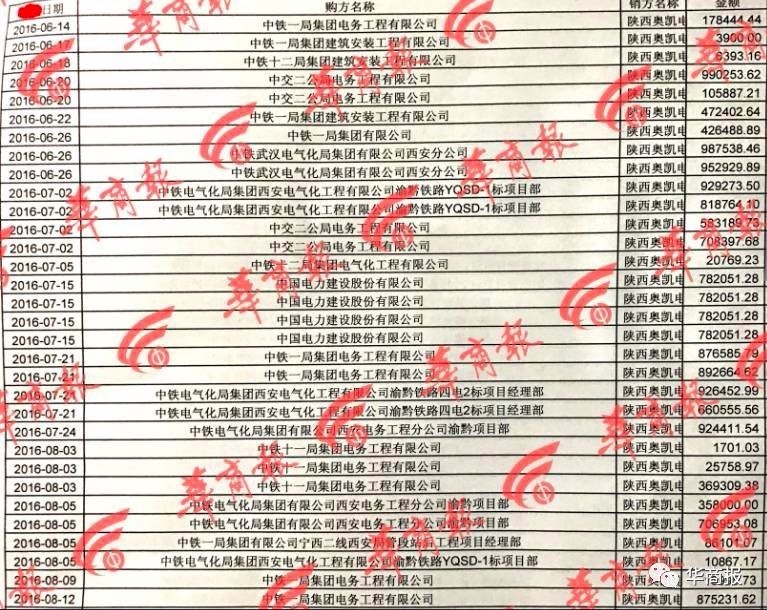 日期 购方名称 销方名称 金额
2016-06-14 中铁一局集团电务工程有限公司 陕西奥凯电 178444.44
2016-06-17 中铁一局集团建筑安装工程有限公司 陕西奥凯电 3900.00
2016-06-18 中铁十二局集团建筑安装工程有限公司 陕西奥凯电 6393.16
2016-06-20 中交二公局电务工程有限公司 陕西奥凯电 990253.62
2016-06-20 中交二公局电务工程有限公司 陕西奥凯电 105887.21
2016-06-22 中铁一局集团建筑安装工程有限公司 陕西奥凯电 472402.64
2016-06-26 中铁一局集团有限公司 陕西奥凯电 426488.89
2016-06-26 中铁武汉电气化局集团有限公司西安分公司 陕西奥凯电 987538.46
2016-06-26 中铁武汉电气化局集团有限公司西安分公司 陕西奥凯电 952929.89
2016-07-02 中铁电气化局集团西安电气化工程有限公司渝黔铁路YQSD-1标项目部 陕西奥凯电 929273.50
2016-07-02 中铁电气化局集团西安电气化工程有限公司渝黔铁路YQSD-1标项目部 陕西奥凯电 818764.10
2016-07-02 中交二公局电务工程有限公司 陕西奥凯电 583189.73
2016-07-02 中交二公局电务工程有限公司 陕西奥凯电 708397.68
2016-07-05 中铁十二局集团电气化工程有限公司 陕西奥凯电 20769.23
2016-07-15 中国电力建设股份有限公司 陕西奥凯电 782051.28
2016-07-15 中国电力建设股份有限公司 陕西奥凯电 782051.28
2016-07-15 中国电力建设股份有限公司 陕西奥凯电 782051.28
2016-07-15 中国电力建设股份有限公司 陕西奥凯电 782051.28
2016-07-21 中铁一局集团电务工程有限公司 陕西奥凯电 876585.79
2016-07-21 中铁一局集团电务工程有限公司 陕西奥凯电 892664.62
2016-07-21 中铁电气化局集团西安电气化工程有限公司渝黔铁路四电2标项目经理部 陕西奥凯电 926452.99
2016-07-21 中铁电气化局集团西安电气化工程有限公司渝黔铁路四电2标项目经理部 陕西奥凯电 660555.56
2016-07-24 中铁电气化局集团有限公司西安电务工程分公司渝黔项目部 陕西奥凯电 924411.54
2016-08-03 中铁十一局集团电务工程有限公司 陕西奥凯电 1701.03
2016-08-03 中铁十一局集团电务工程有限公司 陕西奥凯电 25758.97
2016-08-03 中铁十一局集团电务工程有限公司 陕西奥凯电 369309.38
2016-08-05 中铁电气化局集团有限公司西安电务工程分公司渝黔项目部 陕西奥凯电 358000.00
2016-08-05 中铁电气化局集团有限公司西安电务工程分公司渝黔项目部 陕西奥凯电 706953.08
2016-08-05 中铁一局集团有限公司宁西二线西安局管段站房工程项目经理部 陕西奥凯电 86101.07
2016-08-05 中铁电气化局集团西安电气化工程有限公司渝黔铁路YQSD-1标项目部 陕西奥凯电 10867.17
2016-08-09 中铁一局集团电务工程有限公司 陕西奥凯电
2016-08-12 中铁一局集团电务工程有限公司 陕西奥凯电 875231.62
華商報
华商报